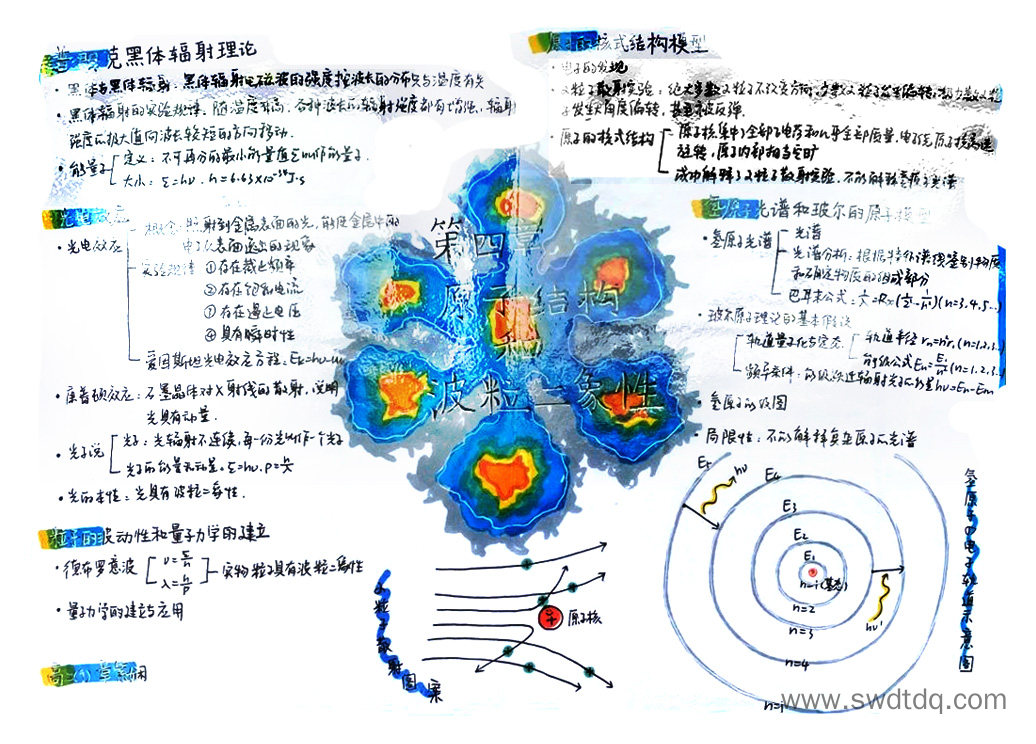 普朗克黑体辐射理论
· 黑体与黑体辐射：黑体辐射电磁波的强度按波长的分布只与温度有关
· 黑体辐射的实验规律：随温度升高，各种波长的辐射强度都有增强，辐射
强度的极大值向波长较短的方向移动.
· 能量子
定义：不可再分的最小的能量值ε叫作能量子.
大小：ε=hν. h=6.63×10⁻³⁴J·s
光电效应
· 光电效应
概念：照射到金属表面的光，能使金属中的
电子从表面逸出的现象
实验规律
①存在截止频率
②存在饱和电流
③存在遏止电压
④具有瞬时性
爱因斯坦光电效应方程：Ek=hν-W₀
· 康普顿效应：石墨晶体对X射线的散射，说明
光具有动量.
· 光子说
光子：光辐射不连续，每一份光叫作一个光子
光子的能量和动量. ε=hν. p=h/λ
· 光的本性：光具有波粒二象性.
粒子的波动性和量子力学的建立
· 德布罗意波
ν=ε/h
λ=h/p
实物粒子具有波粒二象性
· 量子力学的建立与应用
第四章
原子结构
和
波粒二象性
原子的核式结构模型
· 电子的发现
原子核集中了全部正电荷和几乎全部质量，电子绕原子核高速
· 原子的核式结构
运转，原子内部相当空旷
成功解释了α粒子散射实验，不能解释氢原子光谱
氢原子光谱和玻尔的原子模型
· 氢原子光谱
光谱
光谱分析：根据特征谱线鉴别物质
和确定物质的组成部分
巴耳末公式：1/λ=R∞(1/2²-1/n²)(n=3,4,5…)
· 玻尔原子理论的基本假设
轨道量子化与定态
轨道半径rn=n²r₁(n=1,2,3…)
能级公式En=E₁/n²(n=1,2,3…)
频率条件：能级跃迁辐射光子的能量hν=En-Em
· 氢原子能级图
· 局限性：不能解释复杂原子的光谱
E₅
hν
E₄
E₃
E₂
E₁
n=1(基态)
n=2
n=3
n=4
hν'
氢原子的电子轨道示意图
α粒子散射图案
原子核
www.swdtdq.com